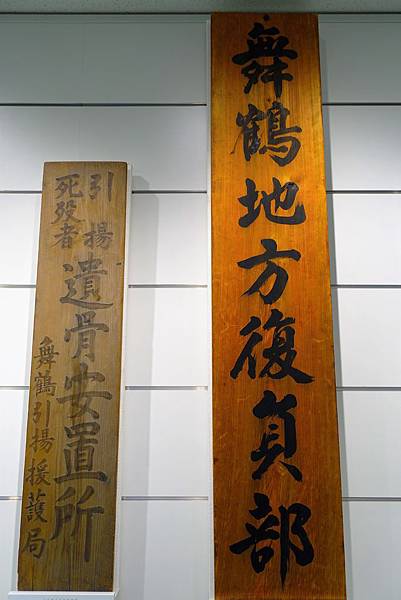 舞鶴地方復員部
引揚
死歿者
遺骨安置所
舞鶴引揚援護局